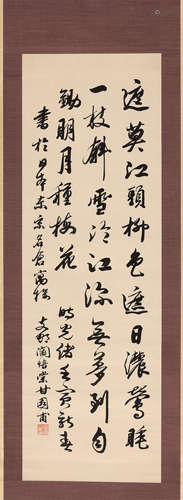 遮莫江頭柳色遮日濃鶯睡
一枝斜雪冷江深無夢到自
鋤明月種梅花 時光緒壬寅新春
書於日本東京名倉寓 支那閻培棠甘園甫